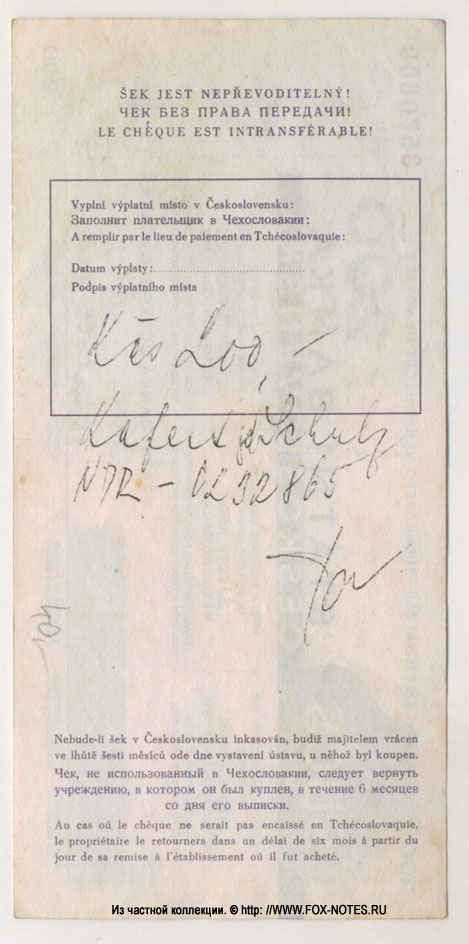 ŠEK JEST NEPŘEVODITELNÝ!
ЧЕК БЕЗ ПРАВА ПЕРЕДАЧИ!
LE CHÈQUE EST INTRANSFÉRABLE!
3570800
Vyplní výplatní místo v Československu:
Заполнит плательщик в Чехословакии:
A remplir par le lieu de paiement en Tchécoslovaquie:
Datum výplaty:
Podpis výplatního místa
Kčs 200,—
NDR - 0232865
40,-
Nebude-li šek v Československu inkasován, budiž majitelem vrácen
ve lhůtě šesti měsíců ode dne vystavení ústavu, u něhož byl koupen.
Чек, не использованный в Чехословакии, следует вернуть
учреждению, в котором он был куплен, в течение 6 месяцев
со дня его выписки.
Au cas où le chèque ne serait pas encaissé en Tchécoslovaquie,
le propriétaire le retournera dans un délai de six mois à partir du
jour de sa remise à l'établissement où il fut acheté.
Из частной коллекции. © http: //WWW.FOX-NOTES.RU